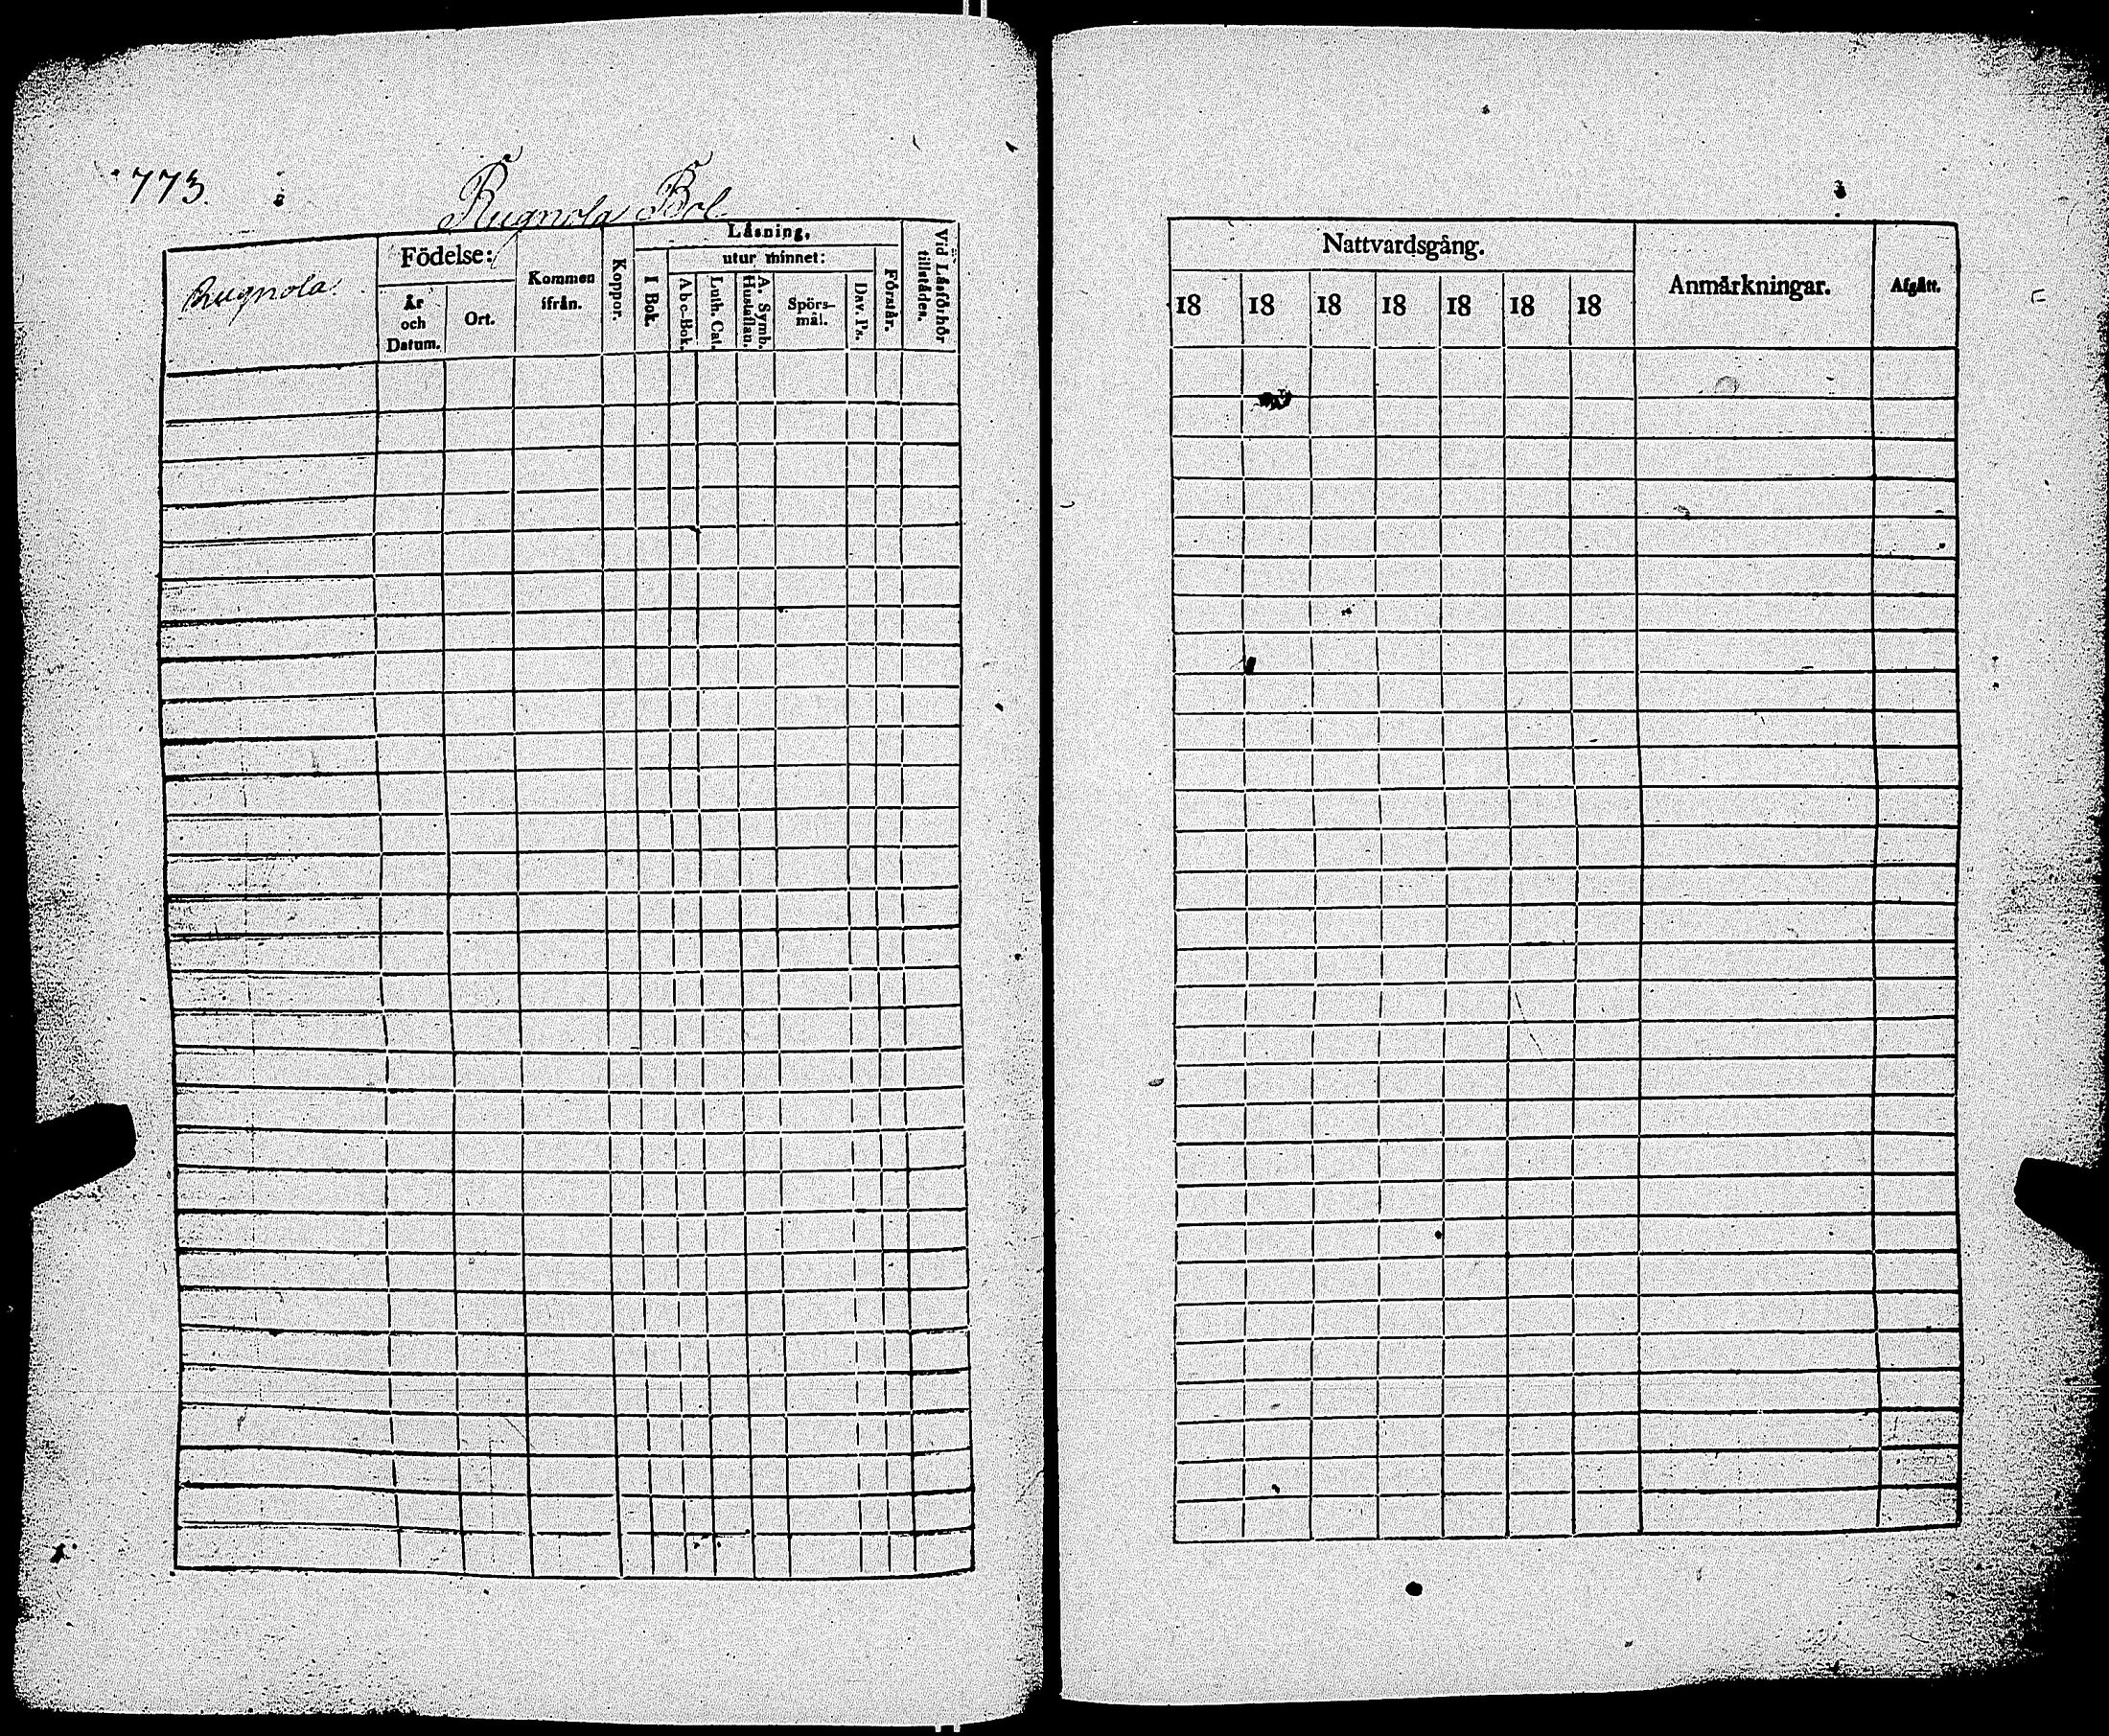 773.
Rugnola Bol
Rugnola
Födelse:
År och Datum.
Ort.
Kommen ifrån.
Koppor.
Låsning,
I Bok.
utur minnet:
Abc-Bok.
Luth. Cat.
A. Symb. Hustaflan.
Spörs-mål.
Dav. Ps.
Förstår.
Vid Låsförhör tillstådes.
Nattvardsgång.
18 18 18 18 18 18 18
Anmårkningar.
Afgått.